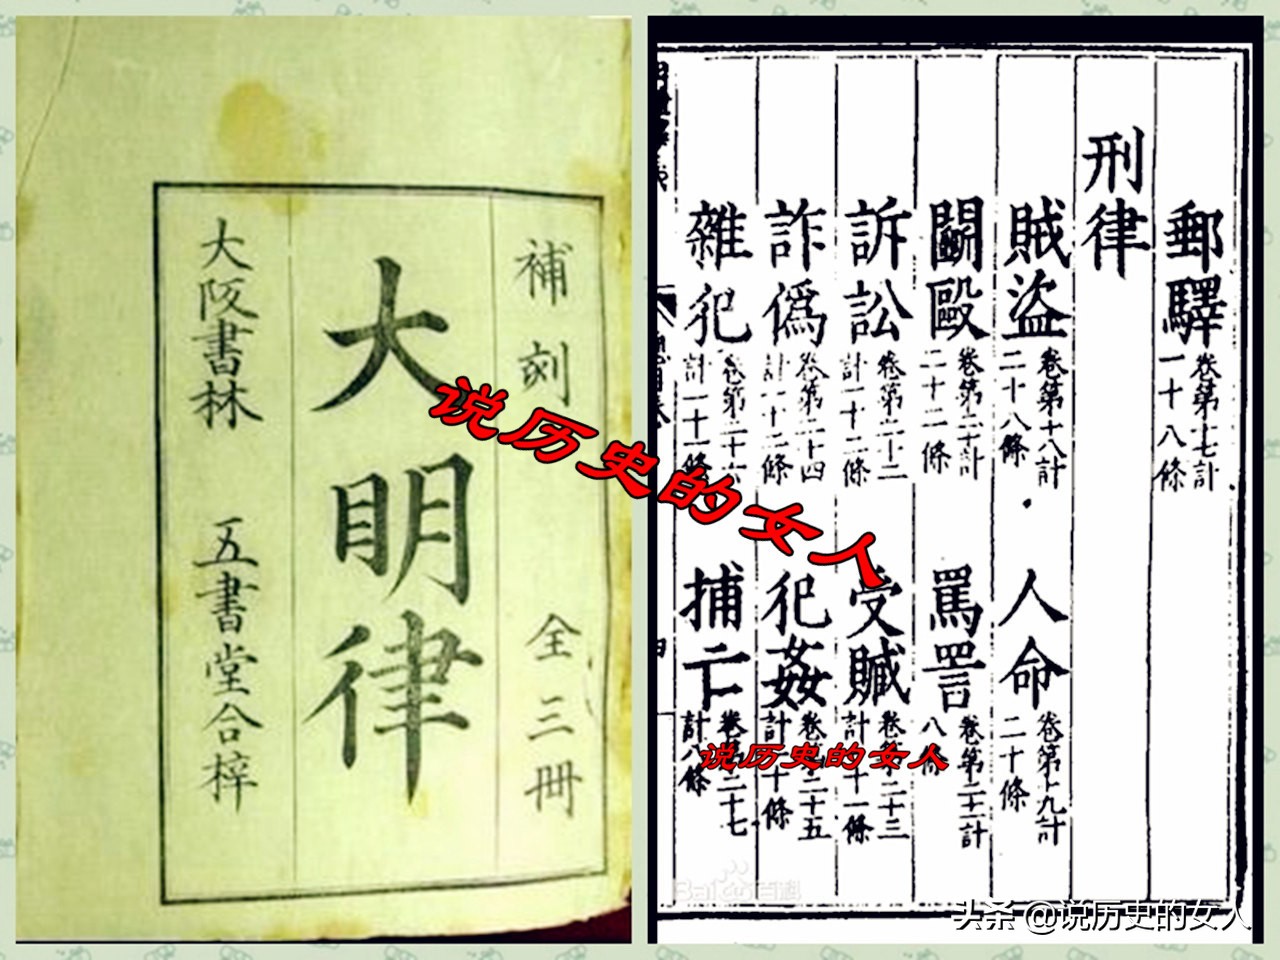 補刻 全三冊
大明律
大阪書林 五書堂合梓
郵驛 卷第十七計一十八條
刑律
賊盜 卷第十八計二十八條 人命 卷第十九計二十條
鬭毆 卷第二十計二十二條 罵詈 卷第二十一計八條
訴訟 卷第二十二計一十二條 受贓 卷第二十三計一十一條
詐偽 卷第二十四計一十二條 犯姦 卷第二十五計一十條
雜犯 卷第二十六計一十一條 捕亡 卷第二十七計八條
说历史的女人
说历史的女人
Baidu百科
头条 @说历史的女人